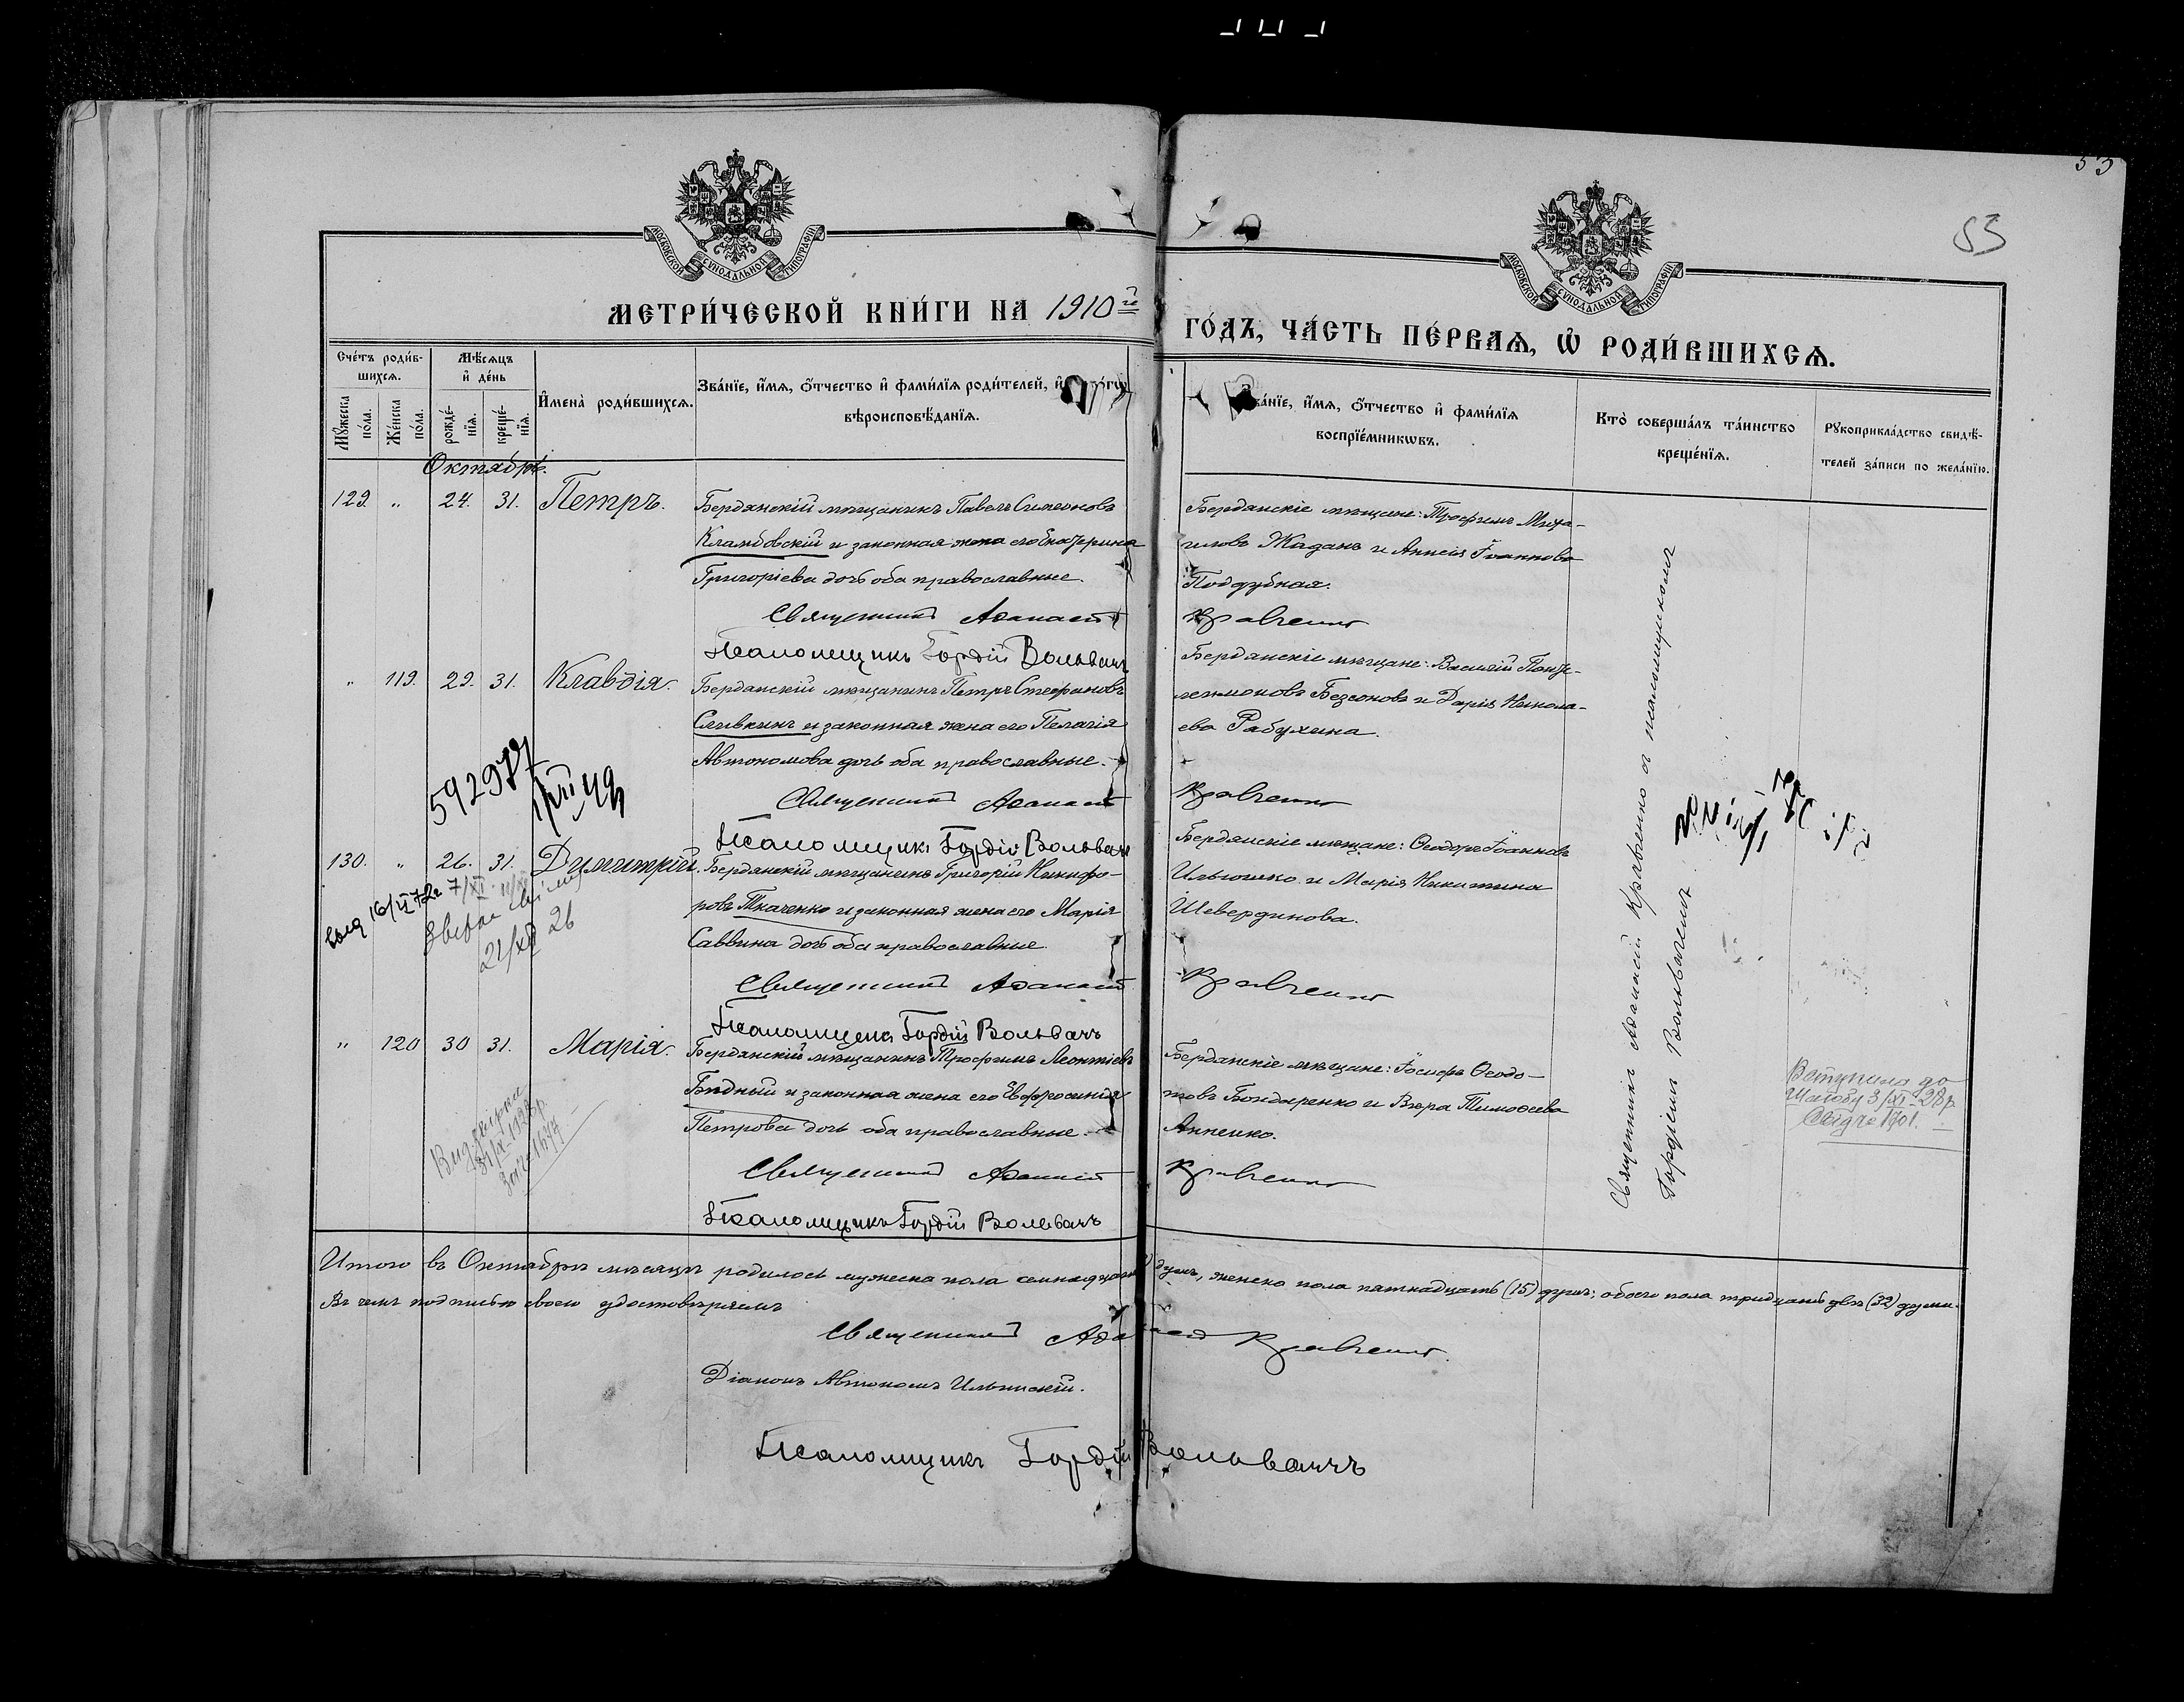 53
53
МОСКОВСКОЙ СѴНОДАЛЬНОЙ ТИПОГРАФІИ
МОСКОВСКОЙ СѴНОДАЛЬНОЙ ТИПОГРАФІИ
МЕТРИ́ЧЕСКОЙ КНИ́ГИ НА 1910й
ГО́ДЪ, ЧА́СТЬ ПЕ́РВАѦ, Ѡ РОДИ́ВШИХСѦ.
Сче́тъ роди́в-
шихсѧ.
Мꙋ́жеска по́ла.
Же́нска по́ла.
Мѣ́сѧцъ
и де́нь
рожде́-
нїѧ.
креще́-
нїѧ.
И҆мена̀ роди́вшихсѧ.
Зва́нїе, и҆́мѧ, о҆́тчество и҆ фами́лїѧ роди́телей, и҆
вѣроисповѣ́данїѧ.
Зва́нїе, и҆́мѧ, о҆́тчество и҆ фами́лїѧ
воспрїе́мникѡвъ.
Кто̀ соверша́лъ та́инство
креще́нїѧ.
Рꙋкоприкла́дство свидѣ́-
телей за́писи по жела́нїю.
Октябрь.
129. " 24. 31. Петръ.
Бердянскій мѣщанинъ Павелъ Симеоновъ
и законная жена его Екатерина
Григоріева дочь оба православные.
Священникъ Аѳанасій
Псаломщикъ Гордій Вольвачъ
Бердянскіе мѣщане: Трофимъ Миха-
иловъ Жаданъ и Анисія Іоаннова
Поддубная.
Кравченко
" 119. 29. 31. Клавдія.
Бердянскій мѣщанинъ Петръ Стефановъ
Сливкинъ и законная жена его Пелагія
Автономова дочь оба православные.
Священникъ Аѳанасій
Псаломщикъ Гордій Вольвачъ
Бердянскіе мѣщане: Василій Панте-
леимоновъ Безсоновъ и Дарія Никола-
ева Рабухина.
Кравченко
130. " 26. 31. Димитрій.
Бердянскій мѣщанинъ Григорій Никифо-
ровъ Ткаченко и законная жена его Марія
Саввина дочь оба православные.
Священникъ Аѳанасій
Псаломщикъ Гордій Вольвачъ
Бердянскіе мѣщане: Ѳеодоръ Іоанновъ
Ильюшко и Марія Никитина
Шевердинова.
Кравченко
21/XII 26
" 120 30 31. Марія.
Бердянскій мѣщанинъ Трофимъ Леонтіевъ
Бѣдный и законная жена его Евфросинія
Петрова дочь оба православные.
Священникъ Аѳанасій
Псаломщикъ Гордій Вольвачъ
Бердянскіе мѣщане: Іосифъ Ѳеодо-
товъ Бондаренко и Вѣра Тимоѳеева
Анненко.
Кравченко
Священникъ Аѳанасій Кравченко съ псаломщикомъ
Гордіемъ Вольвачемъ.
Вступила до
шлюбу 3/XI-28р.
1701.
Итого въ Октябрѣ мѣсяцѣ родилось мужеска пола семнадцать душъ, женска пола пятнадцать (15) душъ; обоего пола тридцать двѣ (32) души.
Въ чемъ подписью своею удостовѣряемъ
Священникъ Аѳанасій Кравченко.
Діаконъ Автономъ Ильинскій.
Псаломщикъ Гордій Вольвачъ